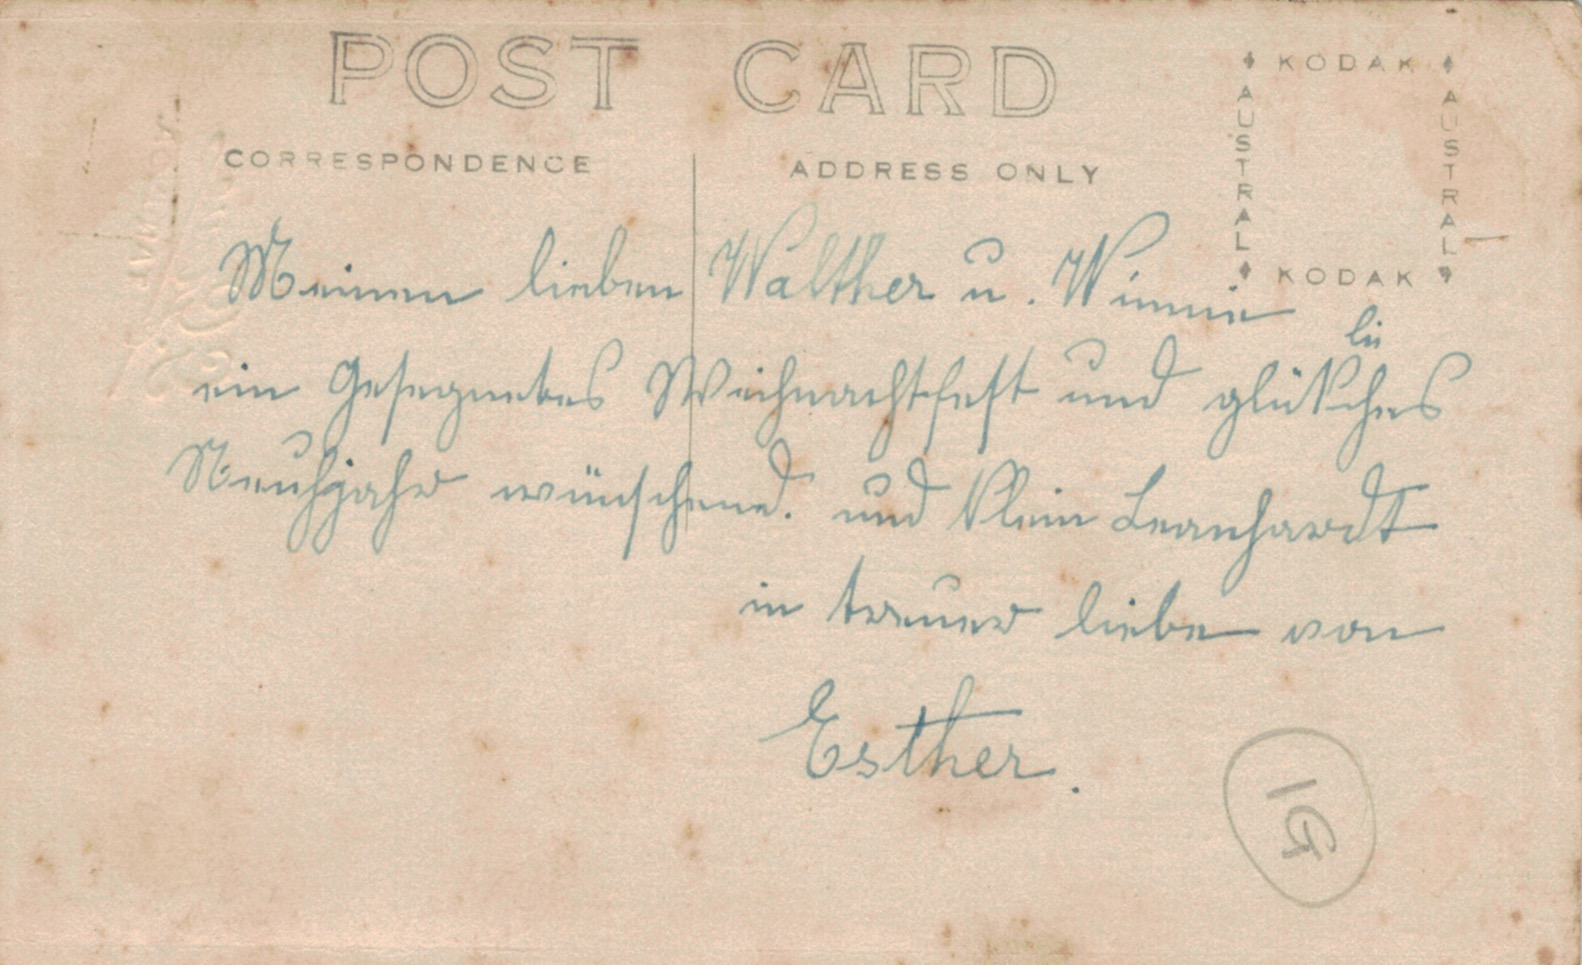 POST CARD
CORRESPONDENCE
ADDRESS ONLY
KODAK
AUSTRAL
AUSTRAL
KODAK
Meinen lieben Walther u. Winnie
li
ein Gesegnetes Weihnachtsfest und glükches
Neuhjahr wünschend. und Klein Leanhardt
in treuer liebe von
Esther.